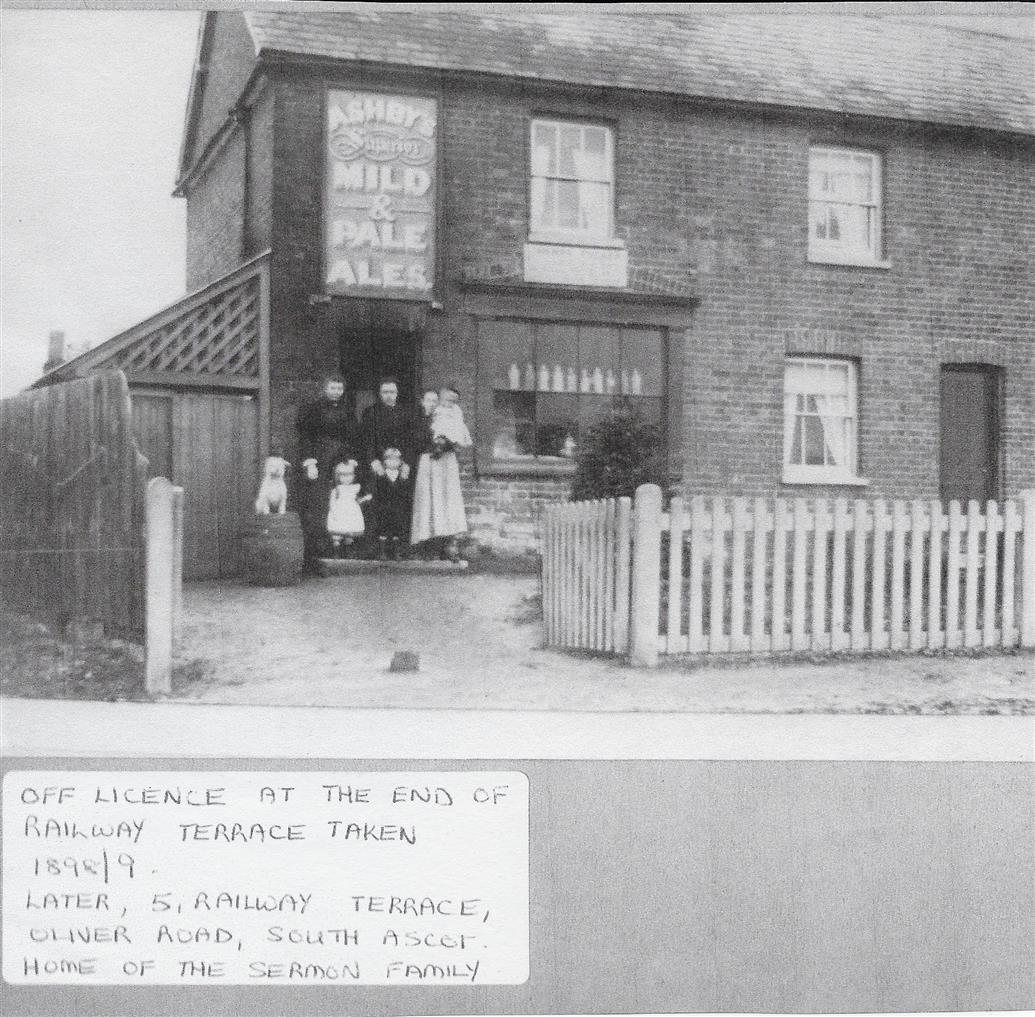 ASHBY'S
Superior
MILD
&
PALE
ALES
OFF LICENCE AT THE END OF
RAILWAY TERRACE TAKEN
1898/9.
LATER, 5, RAILWAY TERRACE,
OLIVER ROAD, SOUTH ASCOT.
HOME OF THE SERMON FAMILY